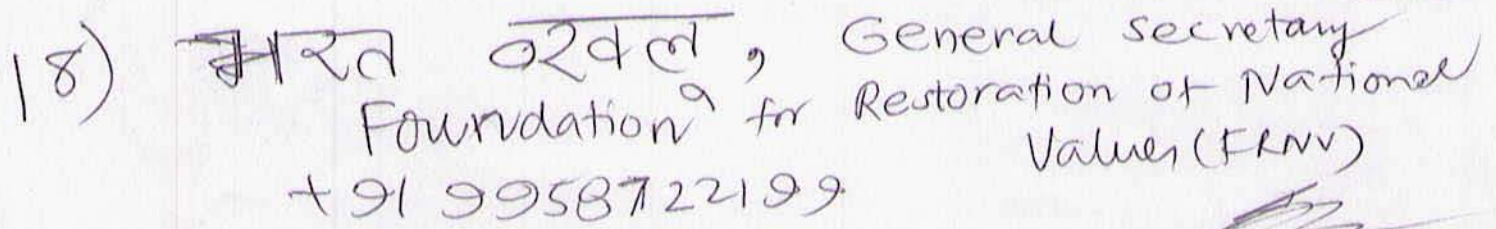 18) भरत वखलु, General Secretary
Foundation for Restoration of National
Values (FRNV)
+91 9958722199